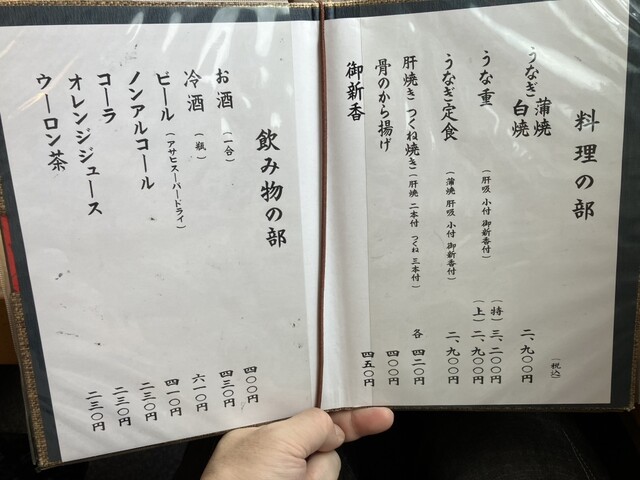 料理の部
(税込)
うなぎ 蒲焼 白焼 二、九〇〇円
うな重 (肝吸 小付 御新香付) (特) 三、二〇〇円
(上) 二、九〇〇円
うなぎ定食 (蒲焼 肝吸 小付 御新香付) 二、九〇〇円
肝焼き つくね焼き (肝焼 二本付 つくね 三本付) 各 四二〇円
骨のから揚げ 四〇〇円
御新香 四五〇円
飲み物の部
お酒 (一合) 四〇〇円
冷酒 (瓶) 四三〇円
ビール (アサヒスーパードライ) 六一〇円
ノンアルコール 四一〇円
コーラ 二三〇円
オレンジジュース 二三〇円
ウーロン茶 二三〇円